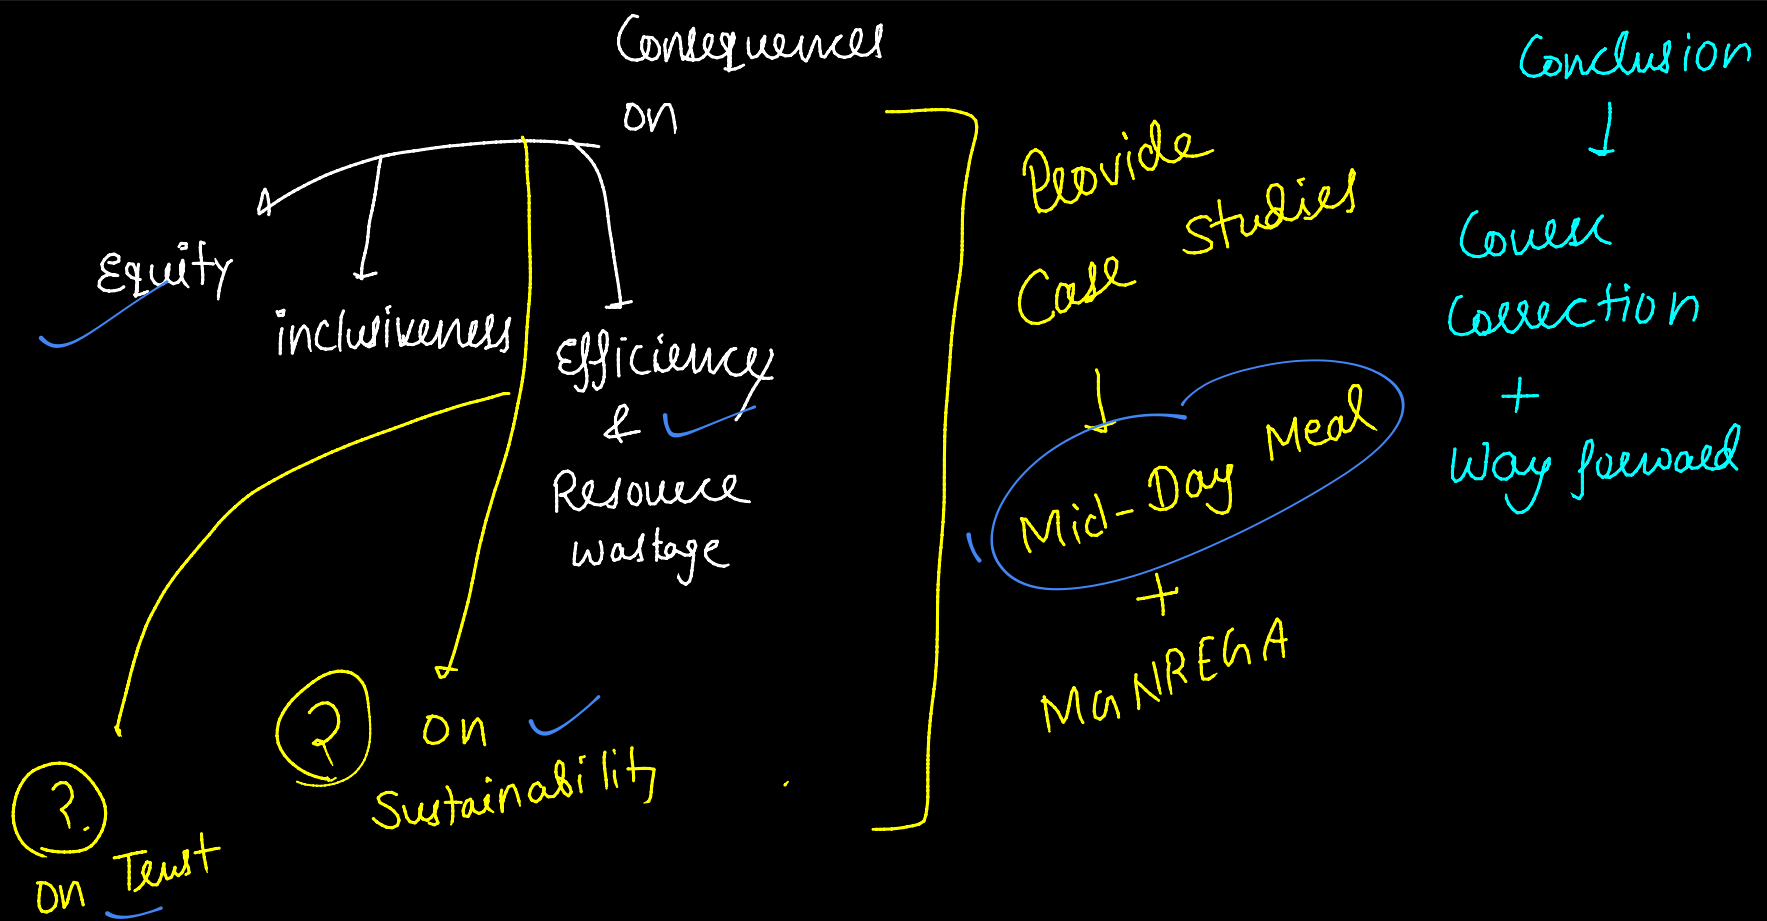 Consequences
on
Equity
inclusiveness
Efficiency
&
Resource
wastage
?
on
Sustainability
?
on Trust
Provide
Case Studies
Mid-Day Meal
+
MGNREGA
Conclusion
Course
Correction
+
Way forward